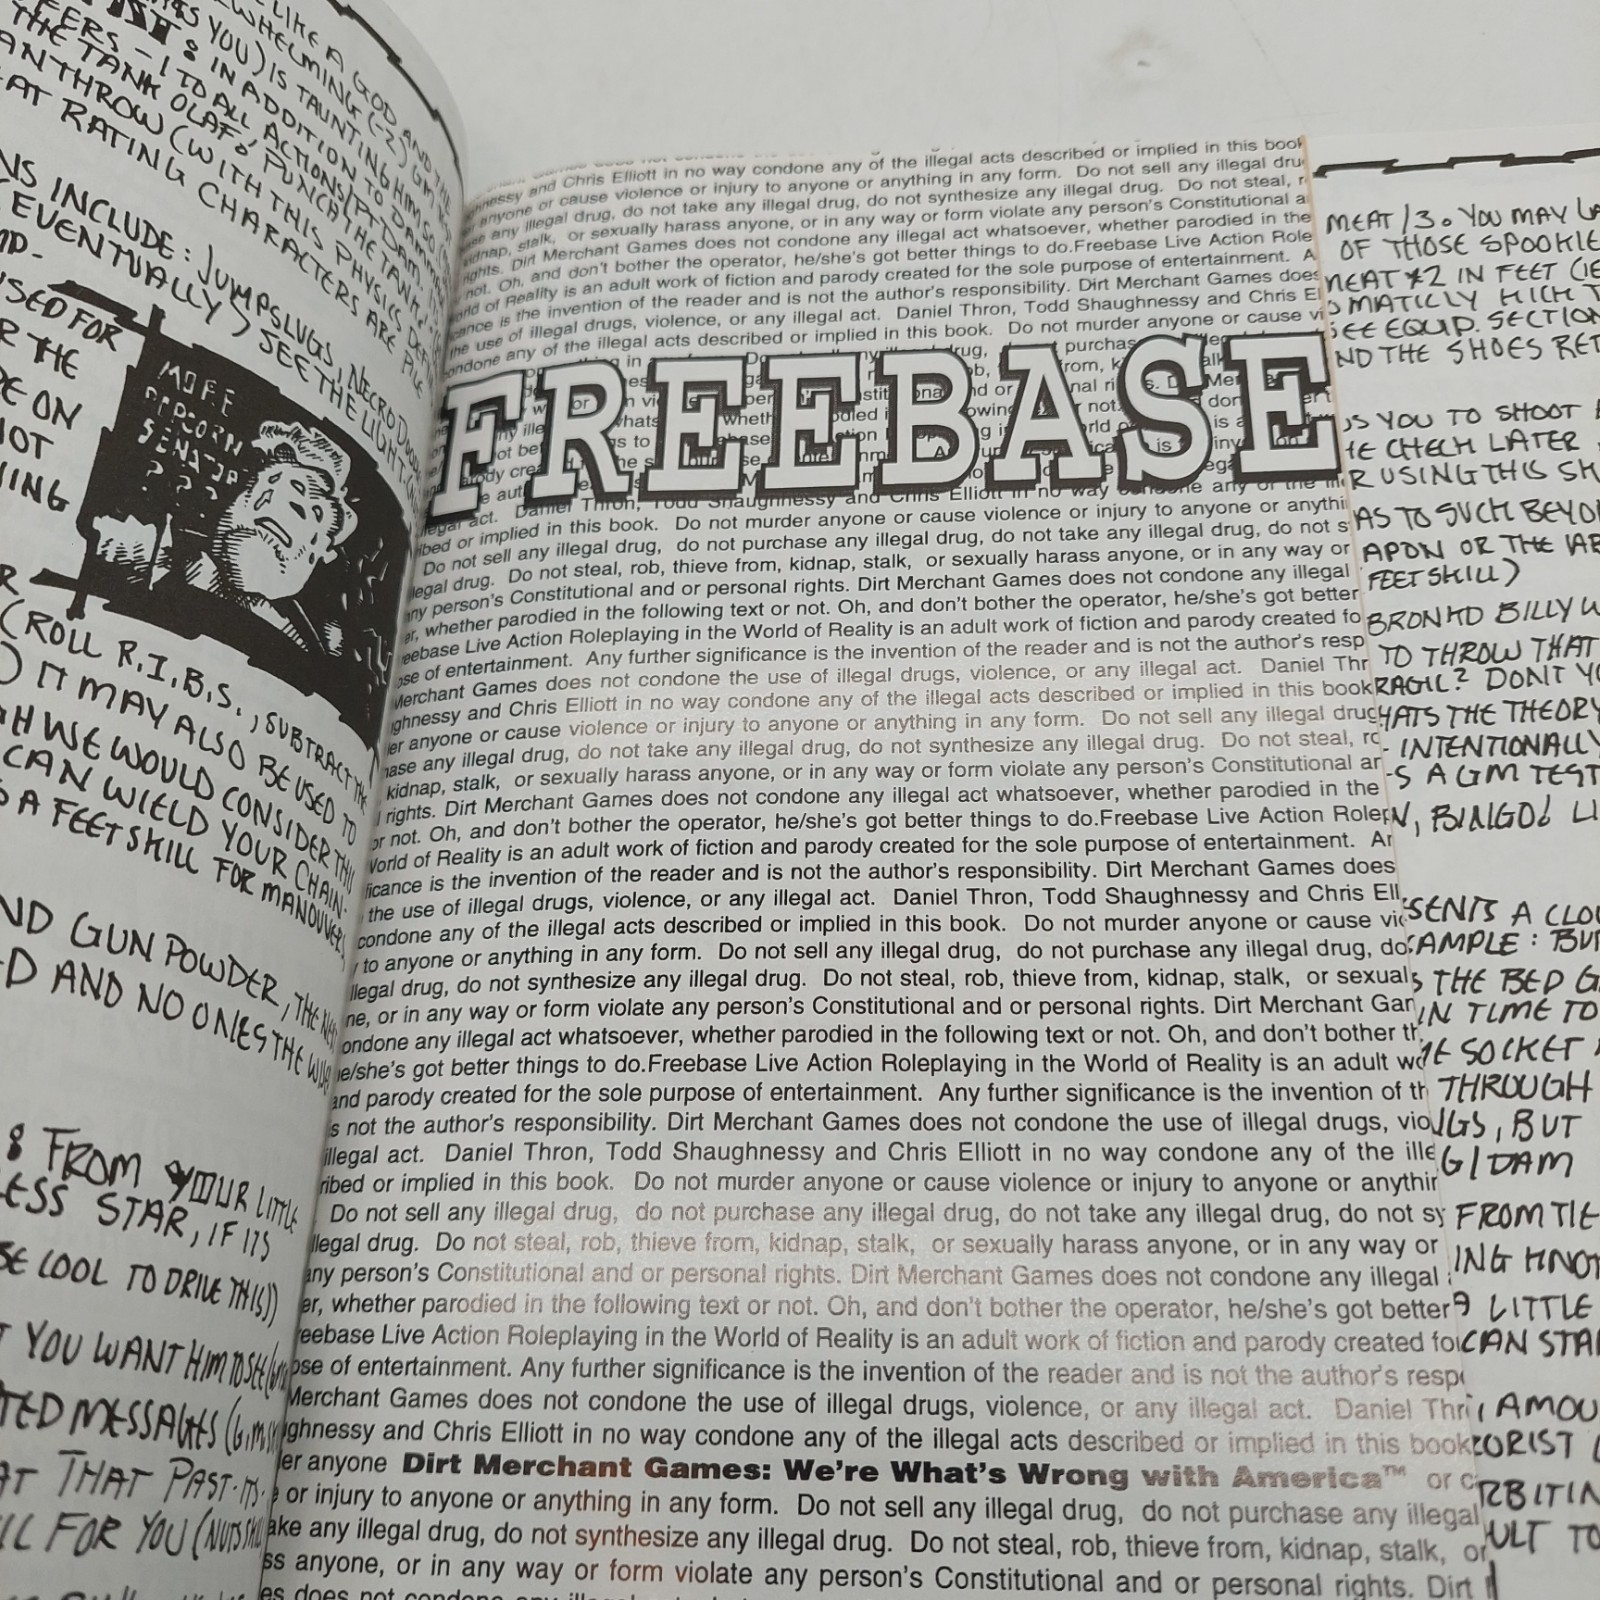 LIKE A GOD AND THE
WHELMING (-2) GM
YOU) IS TAUNTING HIM SO
EERS - 1 TO ALL ACTIONS/PT DAM.
: IN ADDITION TO DAMM
THE TANK OLAF, PUNCH THE TANK.
AN THROW (WITH THIS PHYSICS DEFY
AT RATING CHARACTERS ARE PILE
NS INCLUDE: JUMPSLUGS, NECRO
EVENTUALLY) SEE THE LIGHT.
USED FOR
R THE
DE ON
NOT
MORE
POPCORN
SENATOR
? ? ?
(ROLL R.I.B.S., SUBTRACT THE
) IT MAY ALSO BE USED TO
WE WOULD CONSIDER THIS
CAN WIELD YOUR CHAIN-
A FEET SKILL FOR MANOUVERS
ND GUN POWDER, THE
D AND NO ONE'S THE
: FROM YOUR LITTLE
LESS STAR, IF ITS
SE COOL TO DRIVE THIS))
T YOU WANT HIM TO SEE
TED MESSAGES (G.M.
AT THAT PAST-ITS-
FOR YOU (NUTS SKI
nessy and Chris Elliott in no way condone any of the illegal acts described or implied in this book
anyone or cause violence or injury to anyone or anything in any form. Do not sell any illegal dru
se any illegal drug, do not take any illegal drug, do not synthesize any illegal drug. Do not steal, r
kidnap, stalk, or sexually harass anyone, or in any way or form violate any person's Constitutional a
rights. Dirt Merchant Games does not condone any illegal act whatsoever, whether parodied in the
not. Oh, and don't bother the operator, he/she's got better things to do.Freebase Live Action Role
orld of Reality is an adult work of fiction and parody created for the sole purpose of entertainment. A
icance is the invention of the reader and is not the author's responsibility. Dirt Merchant Games does
the use of illegal drugs, violence, or any illegal act. Daniel Thron, Todd Shaughnessy and Chris El
condone any of the illegal acts described or implied in this book. Do not murder anyone or cause vi
FREEBASE
legal act. Daniel Thron, Todd Shaughnessy and Chris Elliott in no way condone any of the il
ibed or implied in this book. Do not murder anyone or cause violence or injury to anyone or anythi
Do not sell any illegal drug, do not purchase any illegal drug, do not take any illegal drug, do not s
legal drug. Do not steal, rob, thieve from, kidnap, stalk, or sexually harass anyone, or in any way or
ny person's Constitutional and or personal rights. Dirt Merchant Games does not condone any illegal
er, whether parodied in the following text or not. Oh, and don't bother the operator, he/she's got better
eebase Live Action Roleplaying in the World of Reality is an adult work of fiction and parody created fo
ose of entertainment. Any further significance is the invention of the reader and is not the author's resp
Merchant Games does not condone the use of illegal drugs, violence, or any illegal act. Daniel Thr
ghnessy and Chris Elliott in no way condone any of the illegal acts described or implied in this book
er anyone or cause violence or injury to anyone or anything in any form. Do not sell any illegal drug
hase any illegal drug, do not take any illegal drug, do not synthesize any illegal drug. Do not steal, ro
kidnap, stalk, or sexually harass anyone, or in any way or form violate any person's Constitutional ar
l rights. Dirt Merchant Games does not condone any illegal act whatsoever, whether parodied in the
or not. Oh, and don't bother the operator, he/she's got better things to do.Freebase Live Action Rolep
World of Reality is an adult work of fiction and parody created for the sole purpose of entertainment. An
ficance is the invention of the reader and is not the author's responsibility. Dirt Merchant Games does
the use of illegal drugs, violence, or any illegal act. Daniel Thron, Todd Shaughnessy and Chris Ell
condone any of the illegal acts described or implied in this book. Do not murder anyone or cause vio
to anyone or anything in any form. Do not sell any illegal drug, do not purchase any illegal drug, do
llegal drug, do not synthesize any illegal drug. Do not steal, rob, thieve from, kidnap, stalk, or sexual
ne, or in any way or form violate any person's Constitutional and or personal rights. Dirt Merchant Gar
ondone any illegal act whatsoever, whether parodied in the following text or not. Oh, and don't bother th
he/she's got better things to do.Freebase Live Action Roleplaying in the World of Reality is an adult wo
and parody created for the sole purpose of entertainment. Any further significance is the invention of th
s not the author's responsibility. Dirt Merchant Games does not condone the use of illegal drugs, vio
illegal act. Daniel Thron, Todd Shaughnessy and Chris Elliott in no way condone any of the ille
ribed or implied in this book. Do not murder anyone or cause violence or injury to anyone or anythin
. Do not sell any illegal drug, do not purchase any illegal drug, do not take any illegal drug, do not sy
llegal drug. Do not steal, rob, thieve from, kidnap, stalk, or sexually harass anyone, or in any way or
any person's Constitutional and or personal rights. Dirt Merchant Games does not condone any illegal
er, whether parodied in the following text or not. Oh, and don't bother the operator, he/she's got better
reebase Live Action Roleplaying in the World of Reality is an adult work of fiction and parody created for
ose of entertainment. Any further significance is the invention of the reader and is not the author's resp
Merchant Games does not condone the use of illegal drugs, violence, or any illegal act. Daniel Thr
ughnessy and Chris Elliott in no way condone any of the illegal acts described or implied in this book
er anyone Dirt Merchant Games: We're What's Wrong with America™ or c
e or injury to anyone or anything in any form. Do not sell any illegal drug, do not purchase any illegal
ake any illegal drug, do not synthesize any illegal drug. Do not steal, rob, thieve from, kidnap, stalk, or
ss anyone, or in any way or form violate any person's Constitutional and or personal rights. Dirt
es does not condone any illegal
MEAT/3. YOU MAY LA
OF THOSE SPOOKIE
MEAT *2 IN FEET (IE
OMATICLY KICK T
SEE EQUIP. SECTION
ND THE SHOES RET
US YOU TO SHOOT
HE CHECK LATER
R USING THIS SK
AS TO SUCH BEYON
APON OR THE
FEET SKILL)
BRONKO BILLY W
TO THROW THAT
RAGIC? DON'T YO
HATS THE THEORY
- INTENTIONALLY
S A GM TEST
N, BINGO! LI
SENTS A CLOU
SAMPLE: BUR
S THE BED G
IN TIME TO
HE SOCKET
THROUGH
UGS, BUT
G/DAM
FROM TIE
ING KNOT
A LITTLE
CAN STA
AMOU
ORIST
RBITIN
ULT TO